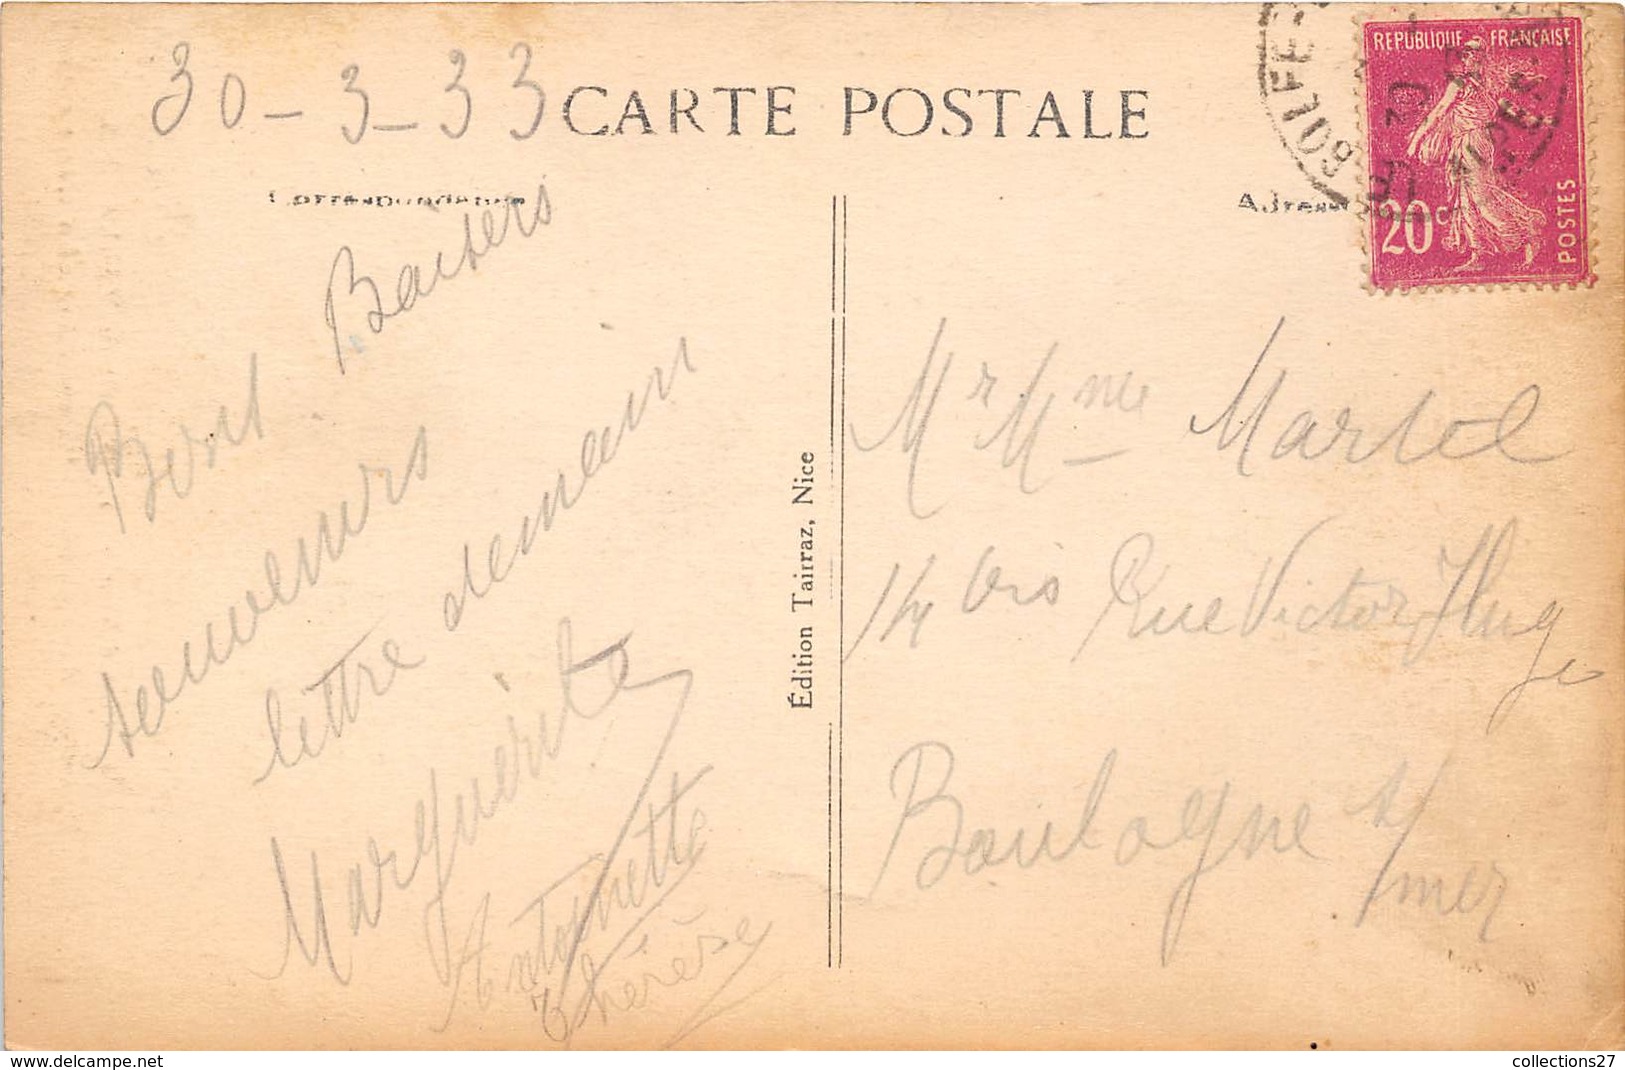 30-3-33
CARTE POSTALE
Correspondance
Adresse
Bons Baisers
souvenirs
lettre demain
Marguerite
Antoinette
Thérèse
Édition Tairraz, Nice
REPUBLIQUE FRANÇAISE
20c
POSTES
GOLFE-
Mr Mme Martel
14 bis Rue Victor Hugo
Boulogne s/
mer
collections27